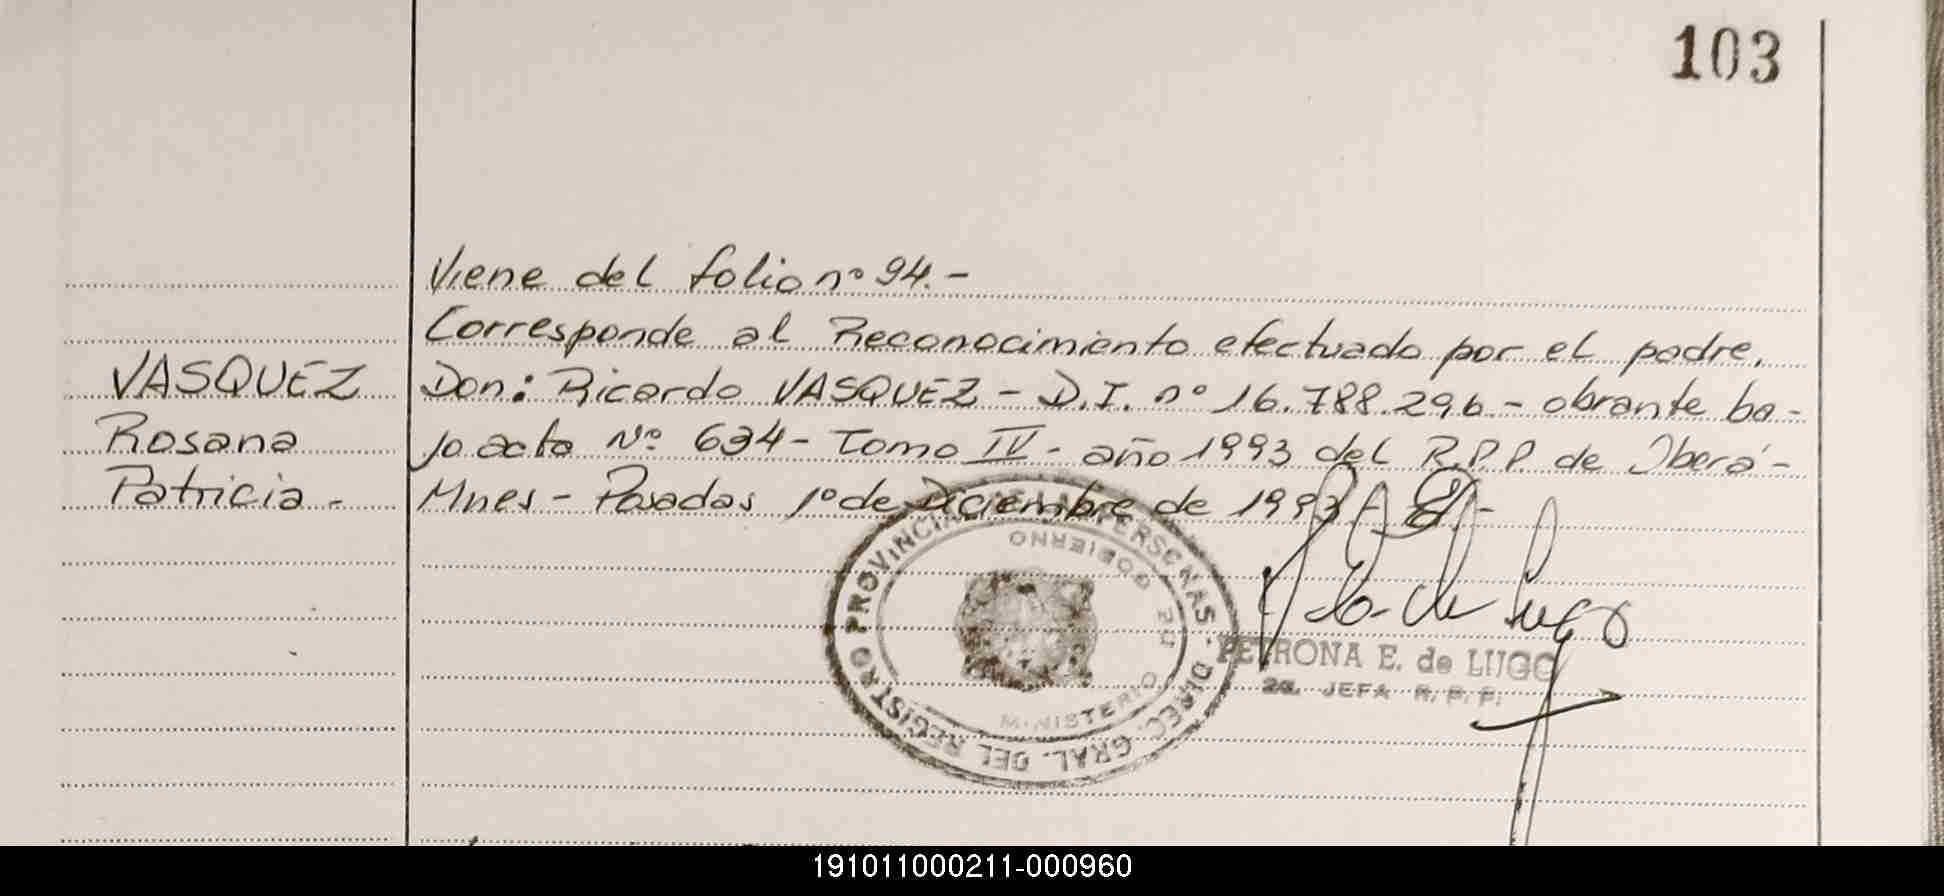 103
Viene del folio nº 94.-
Corresponde al Reconocimiento efectuado por el padre.
VASQUEZ Don: Ricardo VASQUEZ - D.I. nº 16.788.296 - obrante ba-
Rosana jo acta Nº 634 - Tomo IV - año 1993 del R.P.P. de Iberá -
Patricia.- Mnes - Posadas 1º de Diciembre de 1993
REGISTRO PROVINCIAL PERSONAS - DIREC. GRAL. DEL
MINISTERIO DE GOBIERNO
PETRONA E. de LUGO
2a. JEFA R.P.P.
191011000211-000960